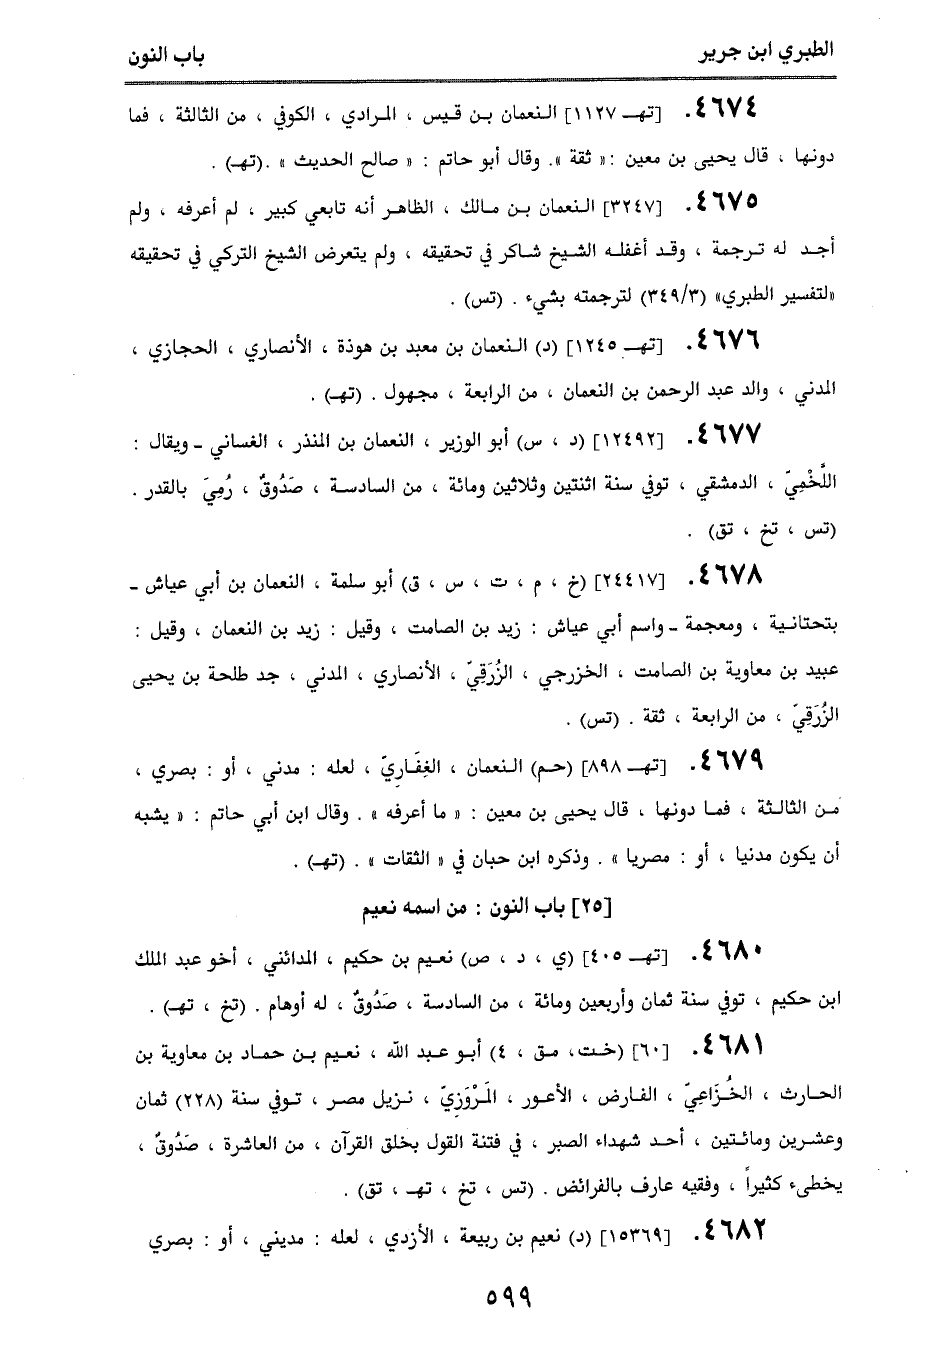 الطبري ابن جرير
باب النون
٤٦٧٤. [تهـ ١١٢٧] النعمان بن قيس ، المرادي ، الكوفي ، من الثالثة ، فما
دونها ، قال يحيى بن معين : « ثقة ». وقال أبو حاتم : « صالح الحديث » .(تهـ) .
٤٦٧٥. [٣٢٤٧] النعمان بن مالك ، الظاهر أنه تابعي كبير ، لم أعرفه ، ولم
أجد له ترجمة ، وقد أغفله الشيخ شاكر في تحقيقه ، ولم يتعرض الشيخ التركي في تحقيقه
«لتفسير الطبري» (٣٤٩/٣) لترجمته بشيء . (تس) .
٤٦٧٦. [تهـ ١٢٤٥] (د) النعمان بن معبد بن هوذة ، الأنصاري ، الحجازي ،
المدني ، والد عبد الرحمن بن النعمان ، من الرابعة ، مجهول . (تهـ) .
٤٦٧٧. [١٢٤٩٢] (د ، س) أبو الوزير ، النعمان بن المنذر ، الغساني ـ ويقال :
اللَّخْمِيّ ، الدمشقي ، توفي سنة اثنتين وثلاثين ومائة ، من السادسة ، صَدُوقٌ ، رُمِيَ بالقدر .
(تس ، تخ ، تق) .
٤٦٧٨. [٢٤٤١٧] (خ ، م ، ت ، س ، ق) أبو سلمة ، النعمان بن أبي عياش ـ
بتحتانية ، ومعجمة ـ واسم أبي عياش : زيد بن الصامت ، وقيل : زيد بن النعمان ، وقيل :
عبيد بن معاوية بن الصامت ، الخزرجي ، الزُرَقِيّ ، الأنصاري ، المدني ، جد طلحة بن يحيى
الزُرَقِيّ ، من الرابعة ، ثقة . (تس) .
٤٦٧٩. [تهـ ٨٩٨] (حم) النعمان ، الغِفَارِيّ ، لعله : مدني ، أو : بصري ،
من الثالثة ، فما دونها ، قال يحيى بن معين : « ما أعرفه » . وقال ابن أبي حاتم : « يشبه
أن يكون مدنيا ، أو : مصريا » . وذكره ابن حبان في « الثقات » . (تهـ) .
[٢٥] باب النون : من اسمه نعيم
٤٦٨٠. [تهـ ٤٠٥] (ي ، د ، ص) نعيم بن حكيم ، المدائني ، أخو عبد الملك
ابن حكيم ، توفي سنة ثمان وأربعين ومائة ، من السادسة ، صَدُوقٌ ، له أوهام . (تخ ، تهـ) .
٤٦٨١. [٦٠] (خت، مق ، ٤) أبو عبد الله ، نعيم بن حماد بن معاوية بن
الحارث ، الخُزَاعِيّ ، الفارض ، الأعور ، المَرْوَزِيّ ، نزيل مصر ، توفي سنة (٢٢٨) ثمان
وعشرين ومائتين ، أحد شهداء الصبر ، في فتنة القول بخلق القرآن ، من العاشرة ، صَدُوقٌ ،
يخطىء كثيراً ، وفقيه عارف بالفرائض . (تس ، تخ ، تهـ ، تق) .
٤٦٨٢. [١٥٣٦٩] (د) نعيم بن ربيعة ، الأزدي ، لعله : مديني ، أو : بصري
٥٩٩